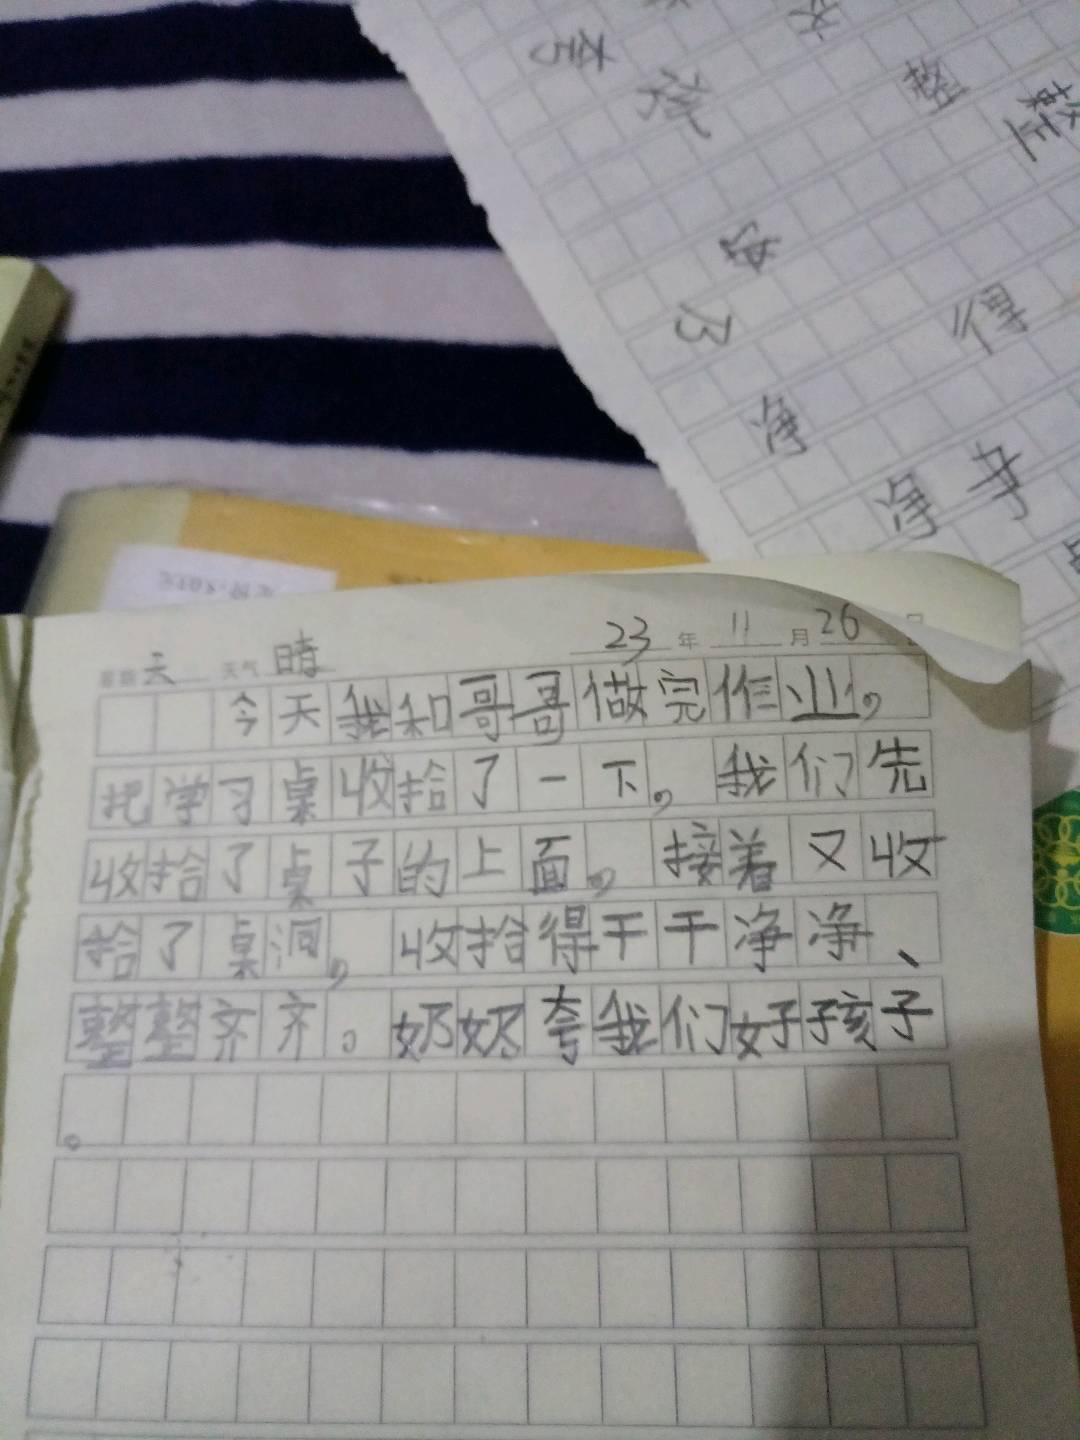 星期天 天气晴 23年11月26日
今天我和哥哥做完作业,
把学习桌收拾了一下,我们先
收拾了桌子的上面,接着又收
拾了桌洞,收拾得干干净净、
整整齐齐。奶奶夸我们好孩子
。
夸
整
整
好
了
得
净
净
干